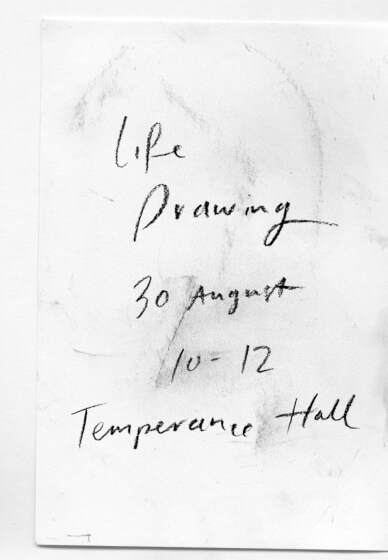 Life
Drawing
30 August
10-12
Temperance Hall